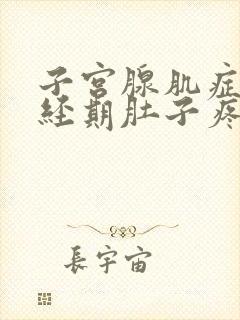 子宫腺肌症
经期肚子疼
長宇宙